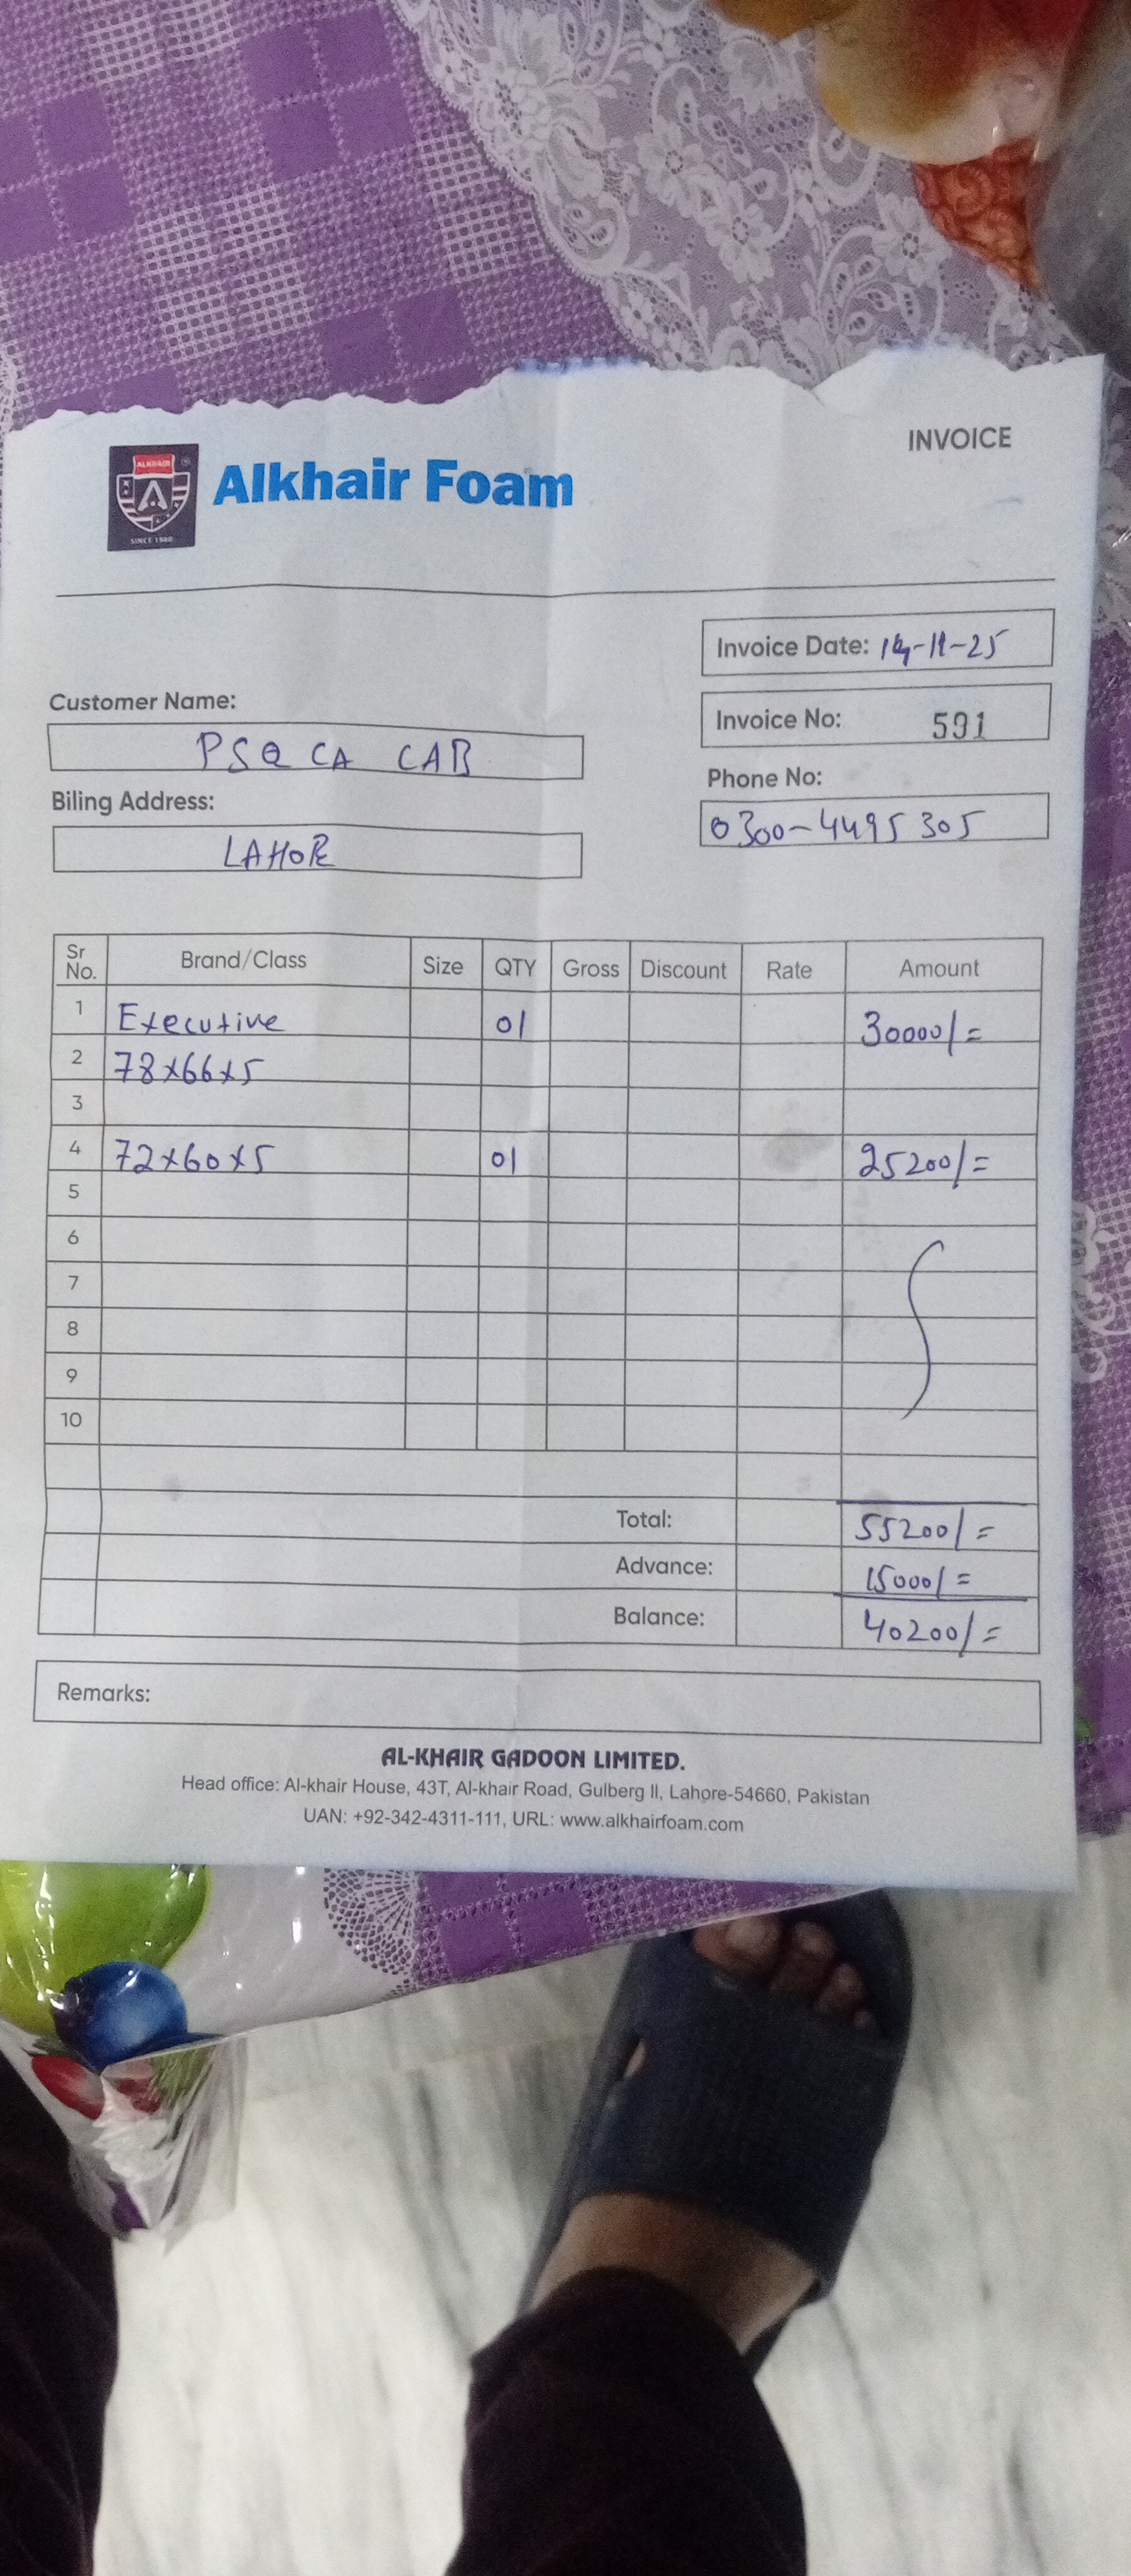 INVOICE
ALKHAIR
SINCE 1980
Alkhair Foam
Invoice Date: 14-11-25
Customer Name:
Invoice No: 591
PSQCA CAB
Phone No:
Biling Address:
0300-4495305
LAHORE
Sr No. Brand/Class Size QTY Gross Discount Rate Amount
1 Executive 01 30000/=
2 78x66x5
3
4 72x60x5 01 25200/=
5
6
7
8
9
10
Total: 55200/=
Advance: 15000/=
Balance: 40200/=
Remarks:
AL-KHAIR GADOON LIMITED.
Head office: Al-khair House, 43T, Al-khair Road, Gulberg II, Lahore-54660, Pakistan
UAN: +92-342-4311-111, URL: www.alkhairfoam.com